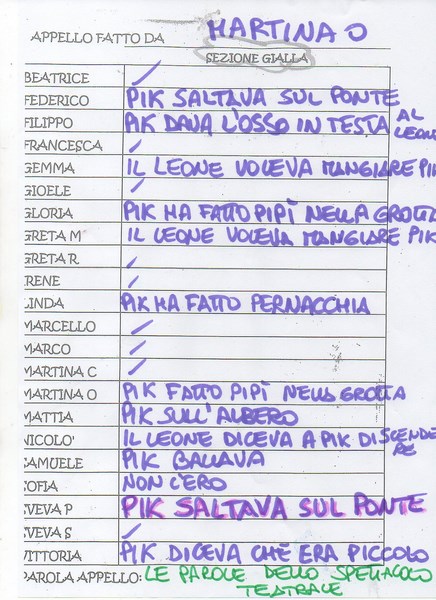 APPELLO FATTO DA MARTINA O
SEZIONE GIALLA
BEATRICE
FEDERICO PIK SALTAVA SUL PONTE
FILIPPO PIK DAVA L'OSSO IN TESTA AL LEONE
FRANCESCA
GEMMA IL LEONE VOLEVA MANGIARE PIK
GIOELE
GLORIA PIK HA FATTO PIPÌ NELLA GROTTA
GRETA M IL LEONE VOLEVA MANGIARE PIK
GRETA R
IRENE
LINDA PIK HA FATTO PERNACCHIA
MARCELLO
MARCO
MARTINA C
MARTINA O PIK FATTO PIPÌ NELLA GROTTA
MATTIA PIK SULL'ALBERO
NICOLO' IL LEONE DICEVA A PIK DI SCENDERE
SAMUELE PIK BALLAVA
SOFIA NON C'ERO
EVEVA P PIK SALTAVA SUL PONTE
EVEVA S
VITTORIA PIK DICEVA CHE ERA PICCOLO
PAROLA APPELLO: LE PAROLE DELLO SPETTACOLO
TEATRALE